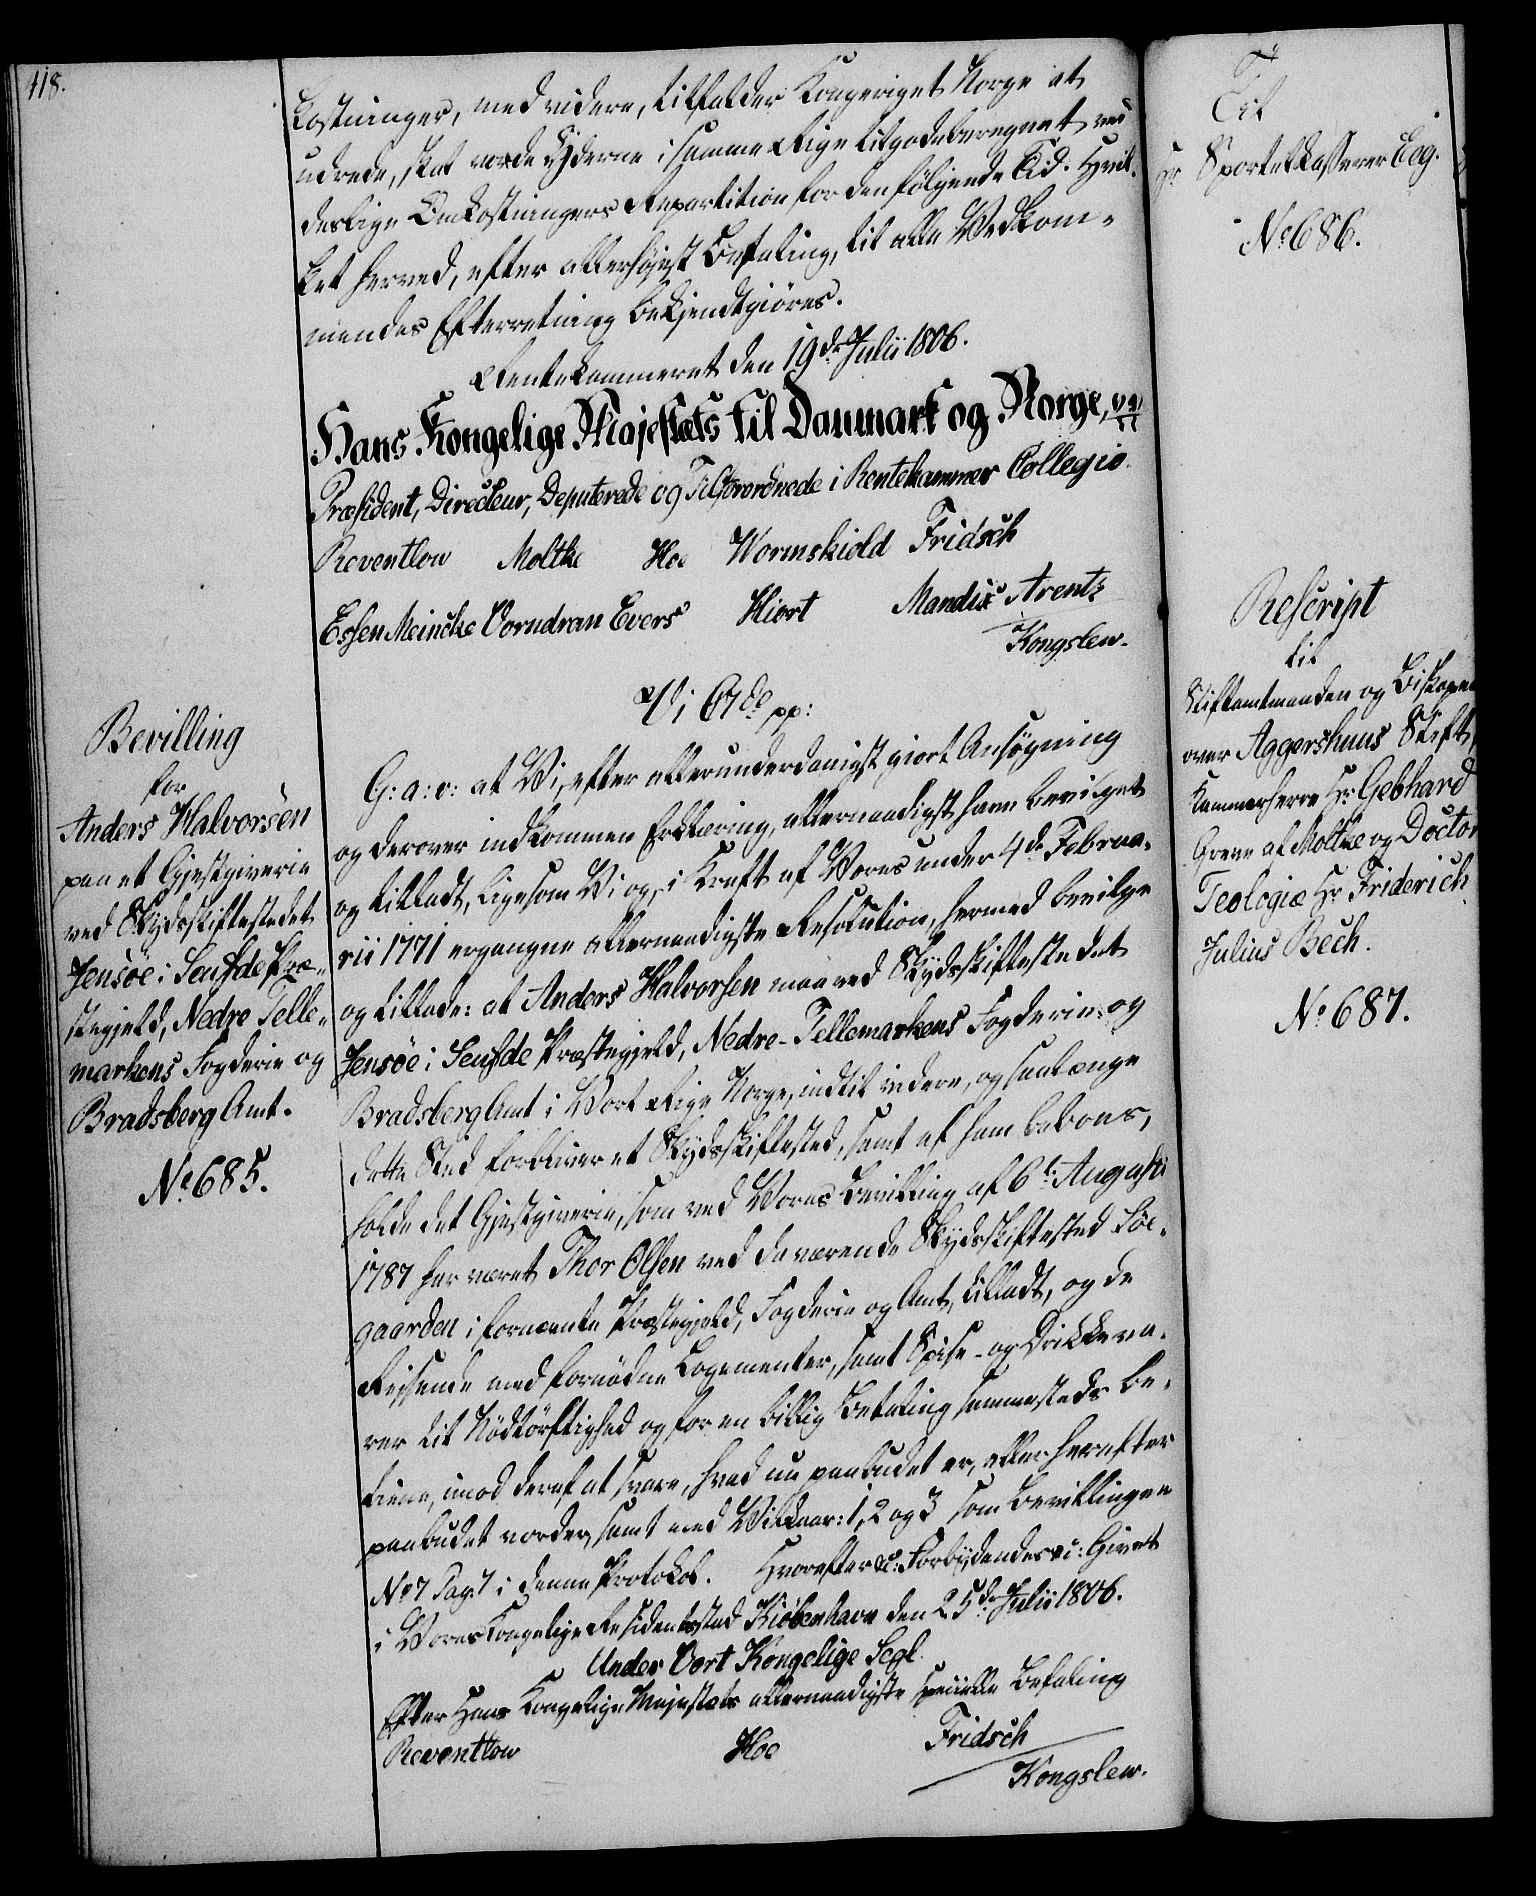 418.
kostninger, med videre, tilfalder Kongeriget Norge at
udrede, skal vorde Ejerne i samme Rige tilgodeberegnet ved
deslige Omkostningers Repartition for den følgende Tid. Hvil-
ket herved, efter allerhøjest Befaling, til alle Vedkom-
mendes Efterretning bekjendtgiøres.
Rentekammeret den 19de Julii 1806.
Hans Kongelige Majestæts til Danmark og Norge, &c.
Præsident, Directeur, Deputerede og Tilforordnede i Rentekammer Collegio.
Reventlow Moltke Hoe Wormskiold Fridsch
Essen Meincke Vorndran Evers Hiort Mandix Arentz
Kongslew.
Bevilling
for
Anders Halvorsen
paa et Gjestgiverie
ved Skydsskiftestedet
Jensøe i Seufde Præ-
stegjeld, Nedre Telle-
markens Fogderie og
Bradsberg Amt.
No 685.
Vi C 7de pp:
G: a: v: at Vi, efter allerunderdanigst giort Ansøgning
og derover indkommen Erklæring, allernaadigst have bevilget
og tilladt, ligesom Vi og, i Kraft af Vores under 4de Februa-
rii 1771 ergangne allernaadigste Resolution, hermed bevilge
og tillade: at Anders Halvorsen maa ved Skydsskiftestedet
Jensøe i Seufde Præstegjeld, Nedre-Tellemarkens Fogderie og
Bradsberg Amt i Vort Rige Norge, indtil videre, og saalænge
dette Sted forbliver et Skydsskiftested, samt af ham beboes,
holde det Gjestgiverie, som ved Vores Bevilling af 6te Augusti
1787 har været Thor Olsen ved daværende Skydsskiftested Søe-
gaarden i fornævnte Præstegjeld, Fogderie og Amt, tilladt, og de
Rejsende med fornødne Logementer, samt Spise- og Drikkeva-
rer til Nødtørftighed og for en billig Betaling sammesteds be-
tiene, imod deraf at svare, hvad nu paabudet er, eller herefter
paabudet vorder, samt med Vilkaar: 1, 2 og 3 som Bevillingen
No 7 Pag: 7 i denne Protokol. Hvorefter &c: Forbydendes &c: Givet
i Vores Kongelige Residentsstad Kiøbenhavn den 25de Julii 1806.
Under Vort Kongelige Segl.
Efter Hans Kongelige Majestæts allernaadigste specielle Befaling
Reventlow Hoe Fridsch
Kongslew.
Til
Hr Sportelkasserer Eeg.
No 686.
Rescript
til
Stiftamtmanden og Biskopen
over Aggershuus Stift,
Kammerherre Hr Gebhard
Greve af Moltke og Doctor
Teologiæ Hr Friderich
Julius Bech.
No 687.